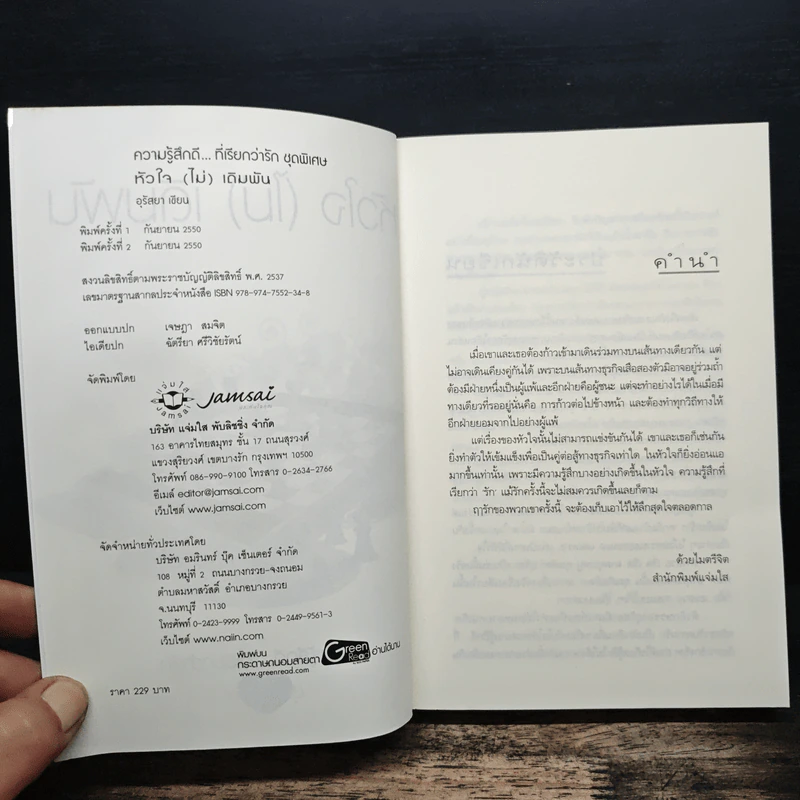 ความรู้สึกดี... ที่เรียกว่ารัก ชุดพิเศษ
หัวใจ (ไม่) เดิมพัน
อุรัสยา เขียน
พิมพ์ครั้งที่ 1 กันยายน 2550
พิมพ์ครั้งที่ 2 กันยายน 2550
สงวนลิขสิทธิ์ตามพระราชบัญญัติลิขสิทธิ์ พ.ศ. 2537
เลขมาตรฐานสากลประจำหนังสือ ISBN 978-974-7552-34-8
ออกแบบปก เจษฎา สมจิต
ไอเดียปก ฉัตรียา ศรีวิชัยรัตน์
จัดพิมพ์โดย
แจ่มใส
Jamsai
Jamsai
บริษัท แจ่มใส พับลิชชิ่ง จำกัด
163 อาคารไทยสมุทร ชั้น 17 ถนนสุรวงศ์
แขวงสุริยวงศ์ เขตบางรัก กรุงเทพฯ 10500
โทรศัพท์ 086-990-9100 โทรสาร 0-2634-2766
อีเมล์ editor@jamsai.com
เว็บไซต์ www.jamsai.com
จัดจำหน่ายทั่วประเทศโดย
บริษัท อมรินทร์ บุ๊ค เซ็นเตอร์ จำกัด
108 หมู่ที่ 2 ถนนบางกรวย-จงถนอม
ตำบลมหาสวัสดิ์ อำเภอบางกรวย
จ.นนทบุรี 11130
โทรศัพท์ 0-2423-9999 โทรสาร 0-2449-9561-3
เว็บไซต์ www.naiin.com
พิมพ์บน
กระดาษถนอมสายตา
www.greenread.com
Green Read
อ่านได้นาน
ราคา 229 บาท
คำนำ
เมื่อเขาและเธอต้องก้าวเข้ามาเดินร่วมทางบนเส้นทางเดียวกัน แต่
ไม่อาจเดินเคียงคู่กันได้ เพราะบนเส้นทางธุรกิจเสือสองตัวมิอาจอยู่ร่วมถ้ำ
ต้องมีฝ่ายหนึ่งเป็นผู้แพ้และอีกฝ่ายคือผู้ชนะ แต่จะทำอย่างไรได้ในเมื่อมี
ทางเดียวที่รออยู่นั่นคือ การก้าวต่อไปข้างหน้า และต้องทำทุกวิถีทางให้
อีกฝ่ายยอมจากไปอย่างผู้แพ้
แต่เรื่องของหัวใจนั้นไม่สามารถแข่งขันกันได้ เขาและเธอก็เช่นกัน
ยิ่งทำตัวให้เข้มแข็งเพื่อเป็นคู่ต่อสู้ทางธุรกิจเท่าใด ในหัวใจก็ยิ่งอ่อนแอ
มากขึ้นเท่านั้น เพราะมีความรู้สึกบางอย่างเกิดขึ้นในหัวใจ ความรู้สึกที่
เรียกว่า 'รัก' แม้รักครั้งนี้จะไม่สมควรเกิดขึ้นเลยก็ตาม
ฤๅรักของพวกเขาครั้งนี้ จะต้องเก็บเอาไว้ให้ลึกสุดใจตลอดกาล
ด้วยไมตรีจิต
สำนักพิมพ์แจ่มใส